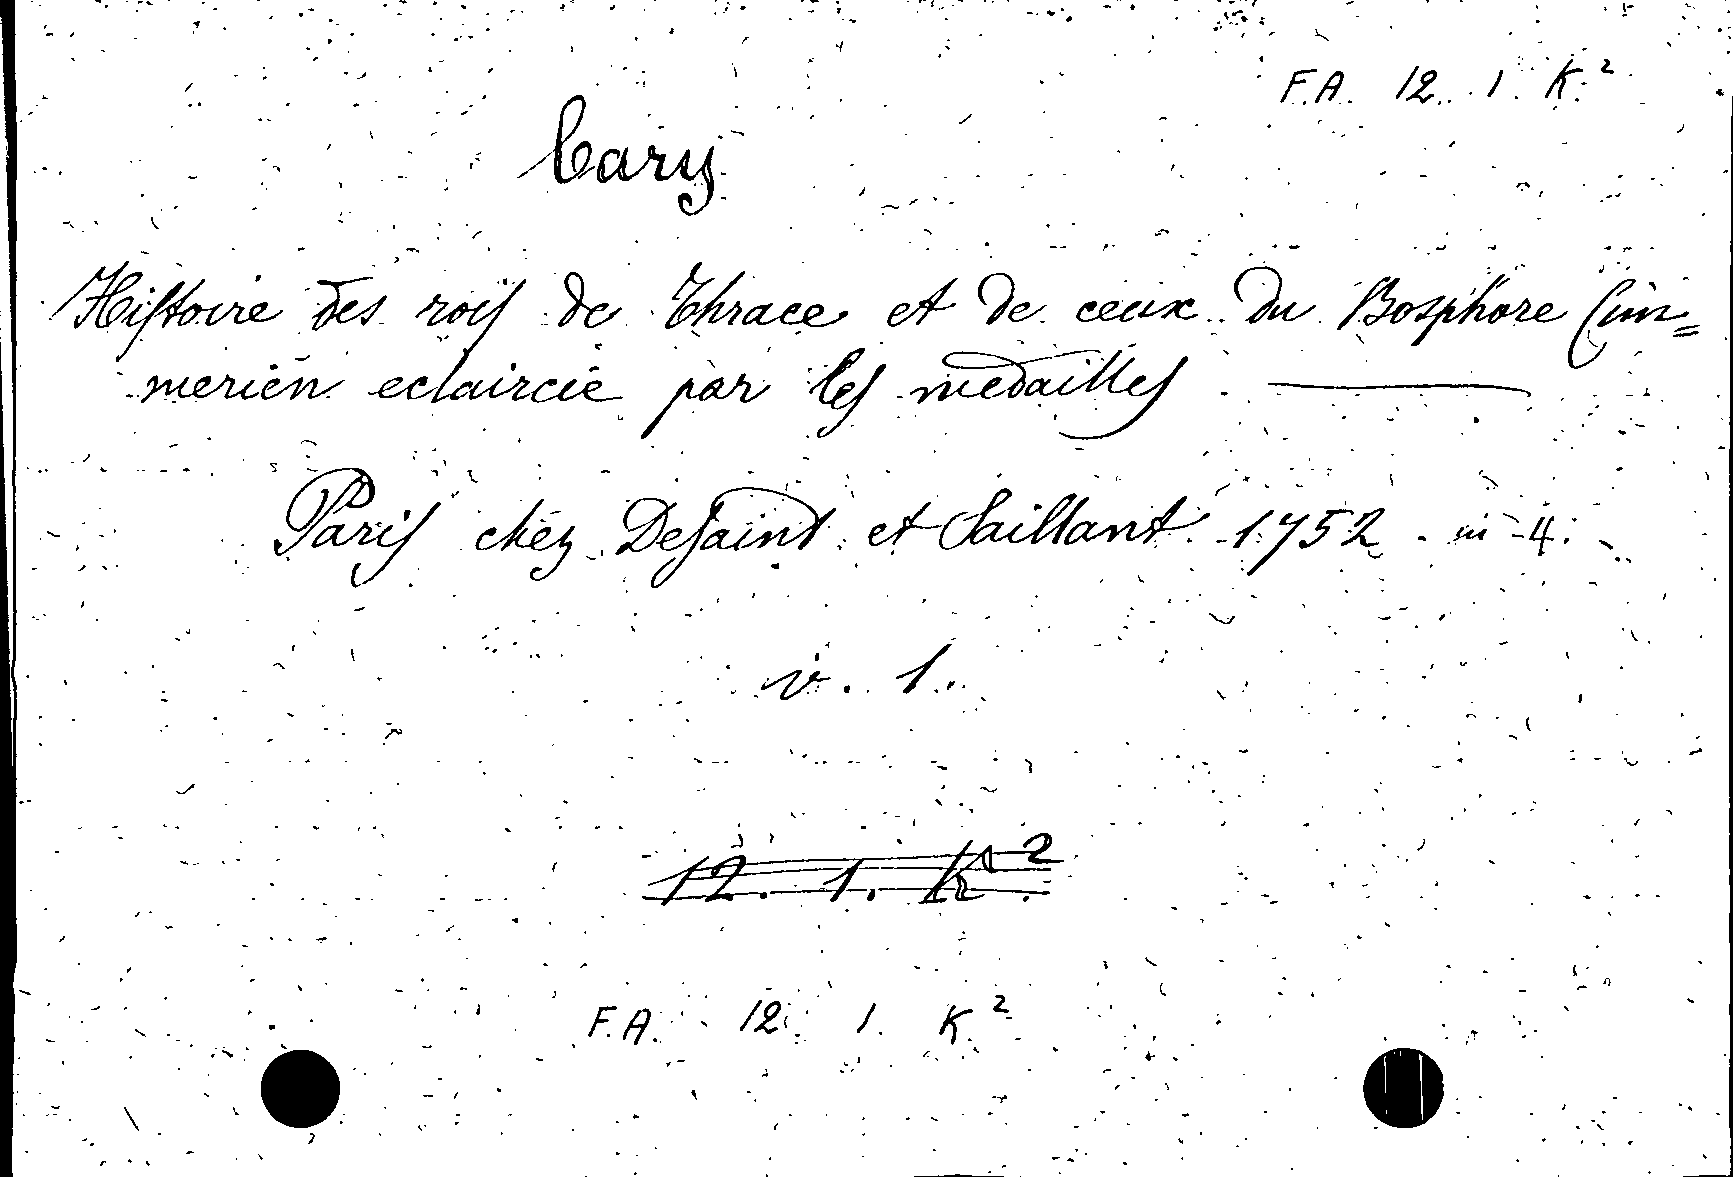 F.A. 12. 1. K.²
Cary
Histoire des rois de Thrace et de ceux du Bosphore Cim=
merien eclaircie par les medailles. —
Paris chez Desaint et Saillant 1752. in-4:
v. 1.
12. 1. K².
F.A. 12. 1. K.²